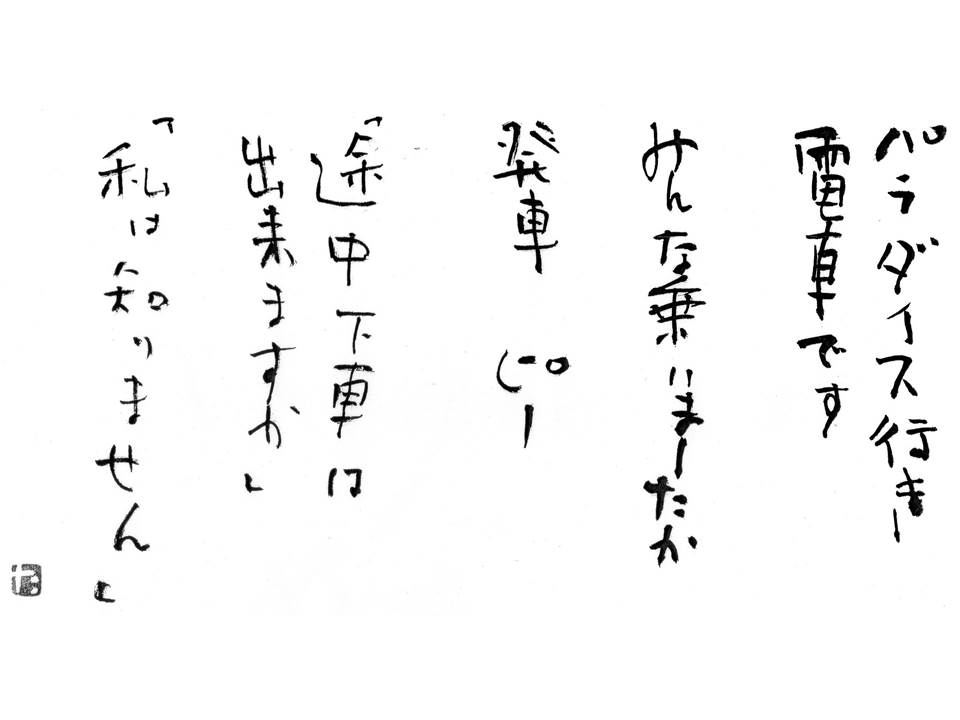 パラダイス行き
電車です
みんな乗りましたか
発車　ピー
「途中下車は
出来ますか」
「私は知りません」